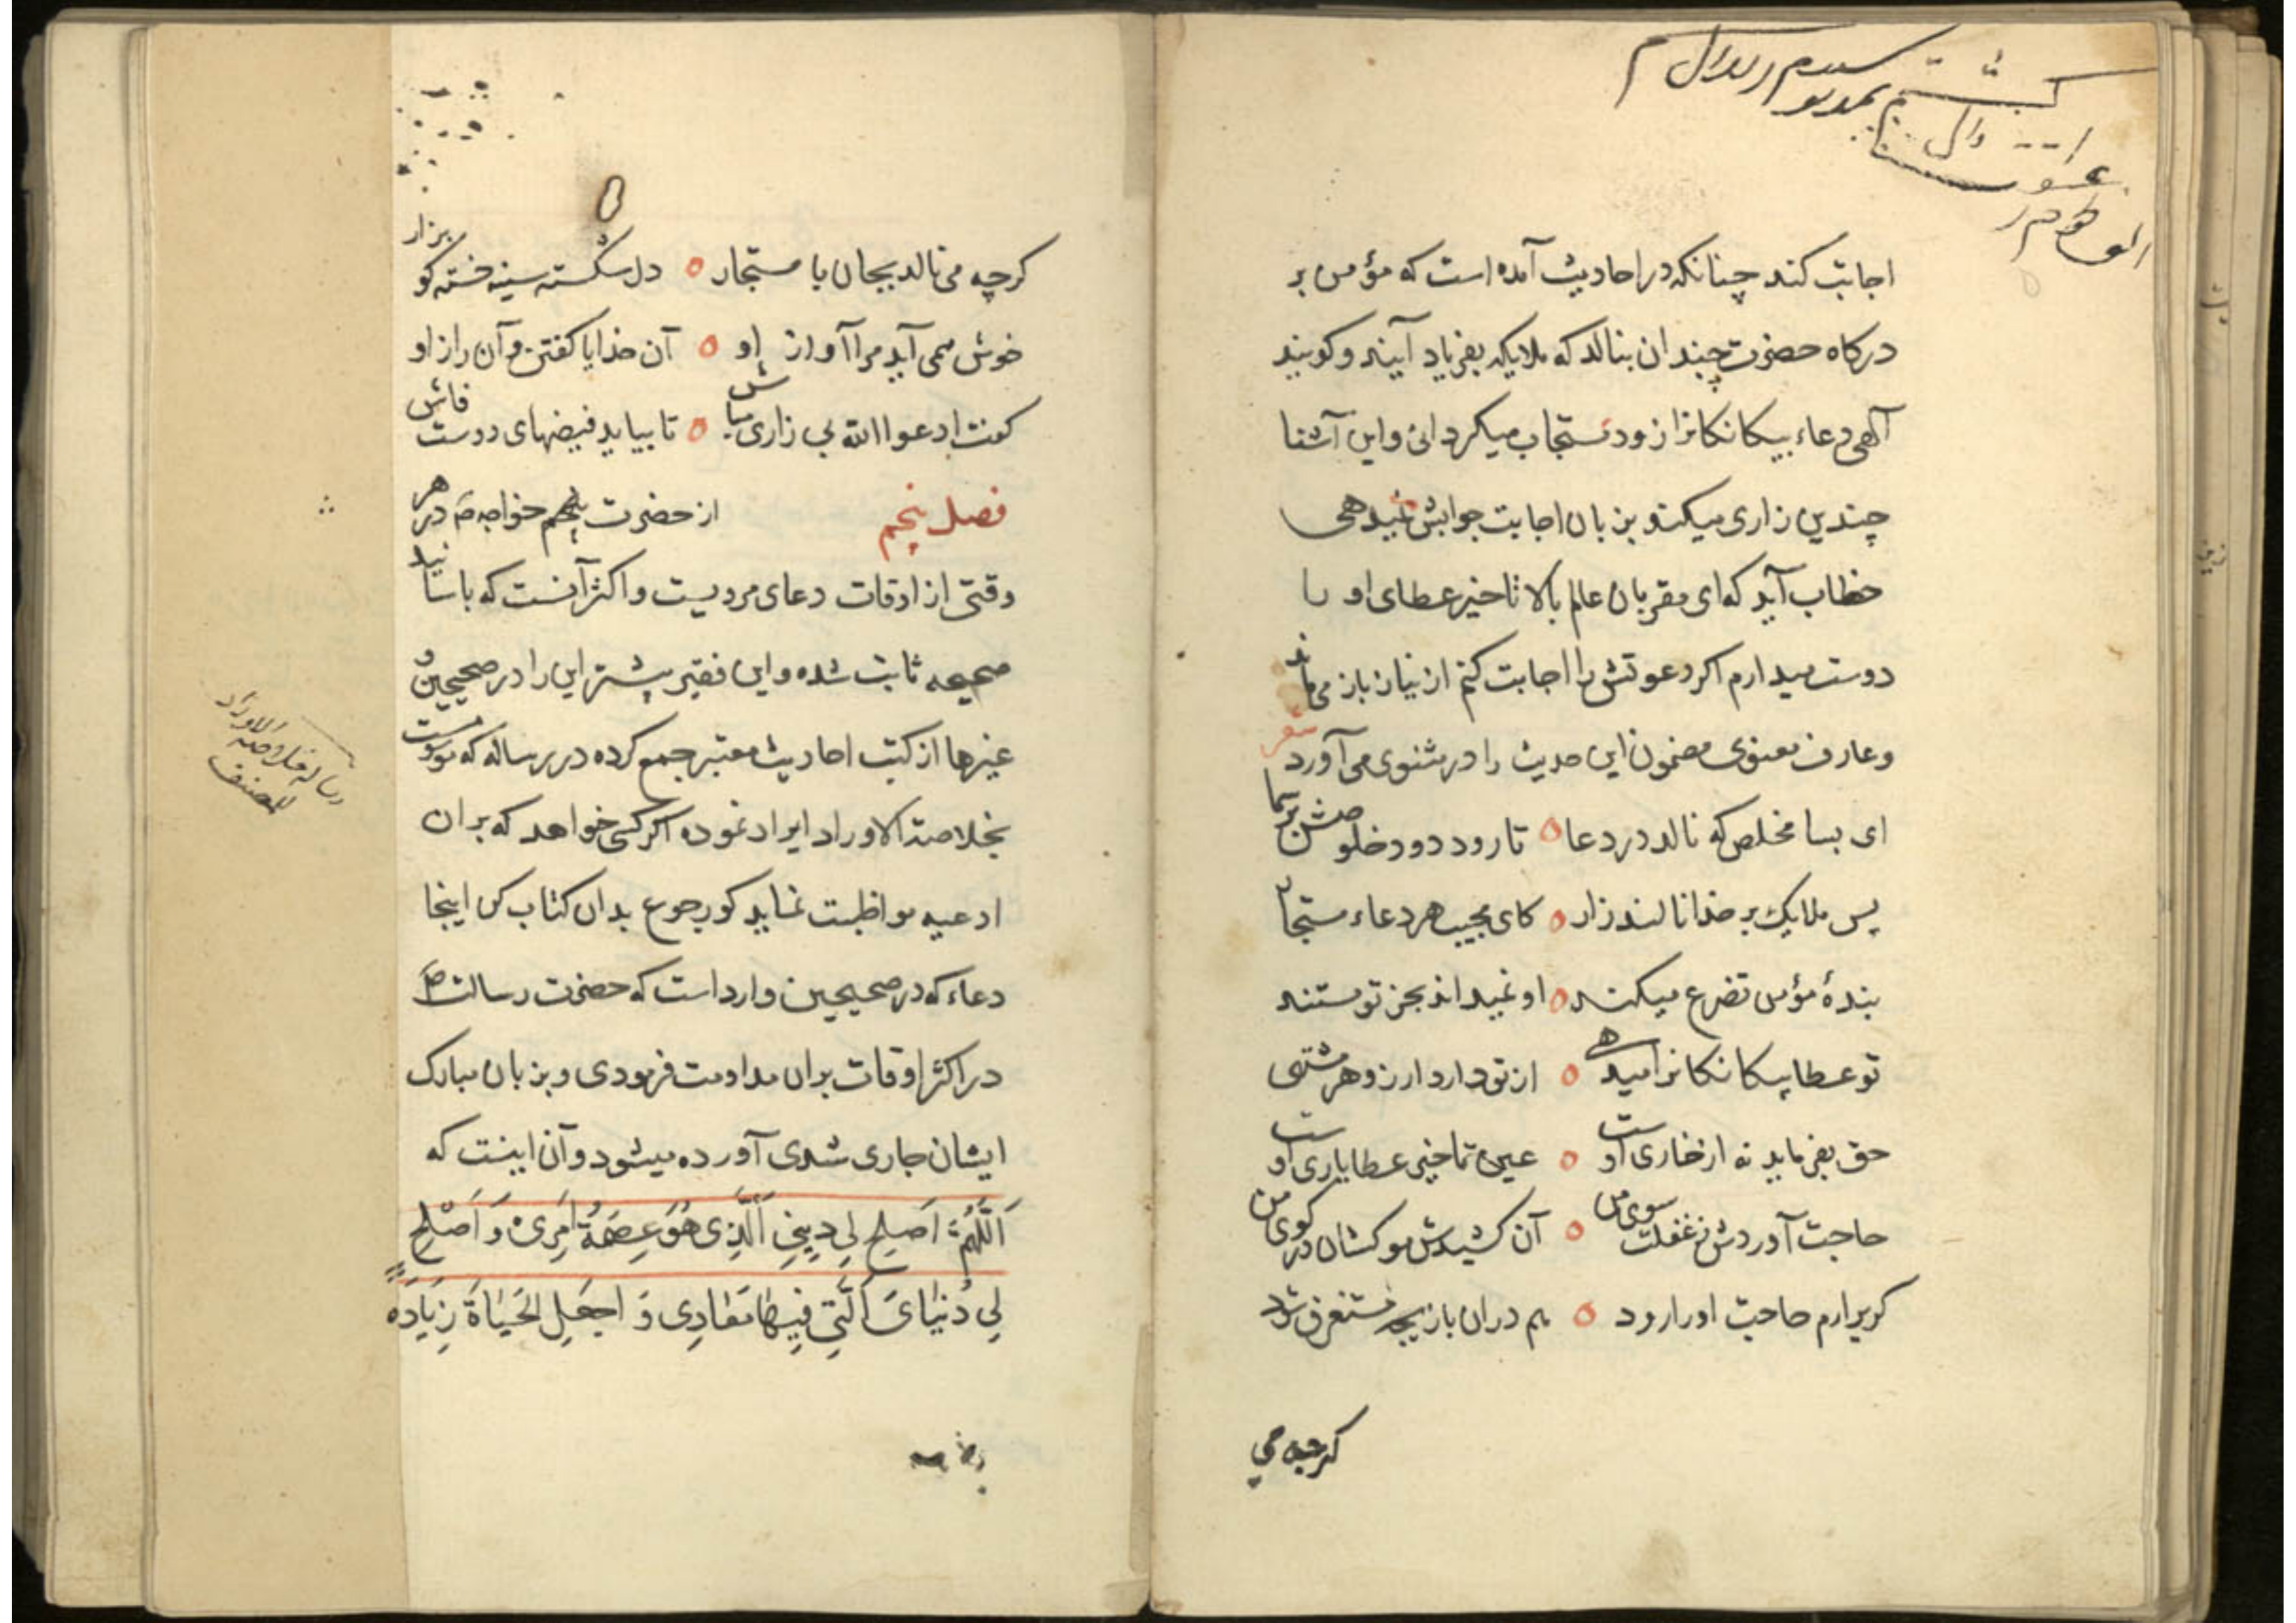 اجابت کند چنانکه در احادیث آمده است که مؤمن بر
درکاه حضرت چندان بنالد که ملایکه بفریاد آیند و کویند
آلهی دعاء بیکانکانرا زود مستجاب میکردانی و این آشنا
چندین زاری میکند و بزبان اجابت جوابش نمیدهی
خطاب آید که ای مقربان عالم بالا تاخیر عطای او را
دوست میدارم اکر دعوتش را اجابت کنم از نیاز باز می ماند
و عارف معنوی مضمون این حدیث را در مثنوی می آورد شعر
ای بسا مخلص که نالد در دعا ه تا رود دود خلوصش بر سما
پس ملایک بر خدا نالند زار ه کای مجیب هر دعاء مستجار
بندهٔ مؤمن تضرع میکند ه او نمیداند بجز تو مستند
تو عطا بیکانکانرا میدهی ه از تو دارد ارزو هر مشتهی
حق بفرماید نه از خاری اوست ه عین تاخیر عطا یاری اوست
حاجت آوردش ز غفلت سوی من ه آن کشیدش مو کشان در کوی من
کر برارم حاجت او را رود ه هم دران بازیچه مستغرق شود
کرچه می
کرچه می نالد بجان یا مستجار ه دل شکسته سینه خسته کو بزار
خوش همی آید مرا آواز او ه آن خدایا کفتن و آن راز او
کفت ادعوا الله بی زاری مباش ه تا بیاید فیضهای دوست فاش
فصل پنجم از حضرت خواجه ص در هر
وقتی از اوقات دعای مرویست و اکثر آنست که باسانید
صحیحه ثابت شده و این فقیر پیشتر این را در صحیحین و
غیرها از کتب احادیث معتبر جمع کرده در رساله که موسوست
بخلاصة الاوراد ایراد نموده اکر کسی خواهد که بران
ادعیه مواظبت نماید کو رجوع بدان کتاب کن اینجا
دعاء که در صحیحین وارد است که حضرت رسالت ص
در اکثر اوقات بران مداومت فرمودی و بزبان مبارک
ایشان جاری شدی آورده میشود و آن اینست که
اَللّٰهُمَّ اَصلِح لِی دِینِی اَلَّذِی هُوَ عِصمَةُ اَمرِی وَ اَصْلِح
لِی دُنیَایَ اَلَّتِی فِیهَا مَعَادِی وَ اجعَلِ الحَیَاةَ زِیَادَةً
رساله خلاصة الاوراد
للمصنف